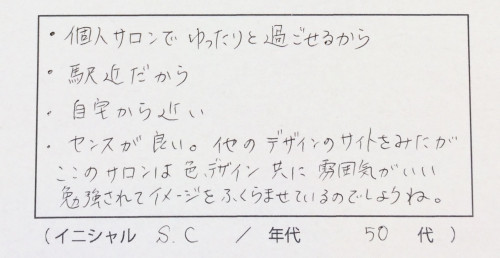 ・個人サロンでゆったりと過ごせるから
・駅近だから
・自宅から近い
・センスが良い。他のデザインのサイトをみたが
このサロンは色、デザイン共に雰囲気がいい
勉強されてイメージをふくらませているのでしょうね。
(イニシャル S.C / 年代 50 代)